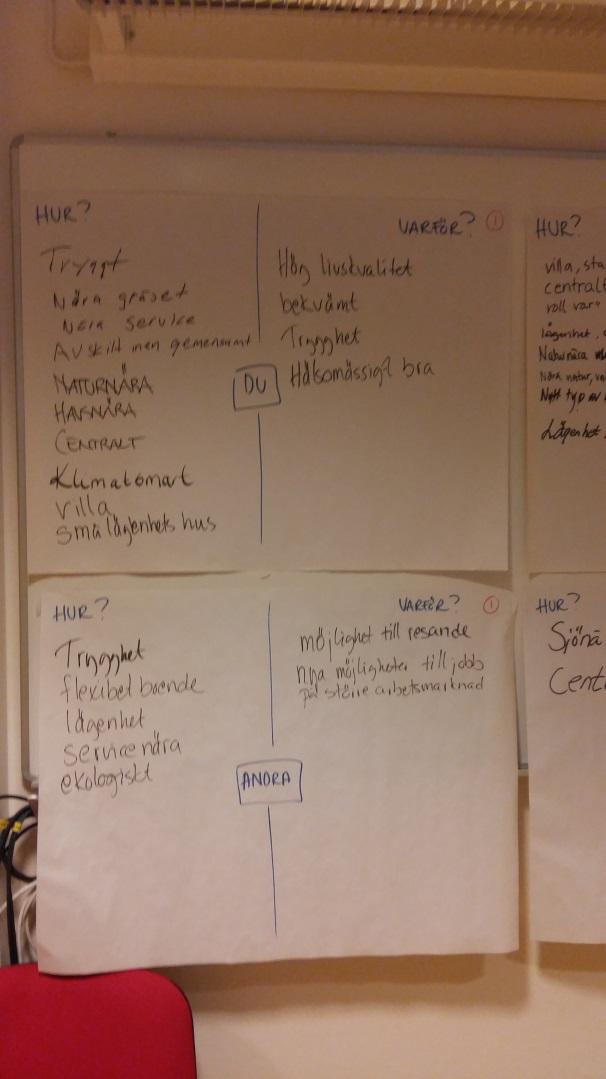 HUR?
Tryggt
Nära gräset
Nära service
Avskilt men gemensamt
NATURNÄRA
HAVSNÄRA
CENTRALT
Klimatsmart
villa
små lägenhets hus
DU
VARFÖR? 1
Hög livskvalitet
bekvämt
Trygghet
Hälsomässigt bra
HUR?
villa, sta
centralt
lägenhet,
Naturnära
Nära natur,
Nytt typ av
Lägenhet,
HUR?
Trygghet
flexibel boende
lägenhet
service nära
ekologiskt
ANDRA
VARFÖR? 1
möjlighet till resande
nya möjligheter till jobb
på större arbetsmarknad
HUR?
Sjönä
Cent